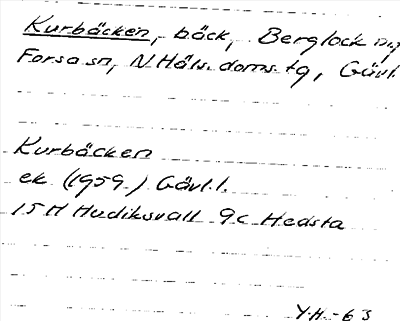 Kurbäcken, bäck, Berglock
Forsa sn, N Häls. doms. tg, Gävl.
Kurbäcken
ek (1959) Gävl.l.
15H Hudiksvall 9c Hedsta
Y.H. -63